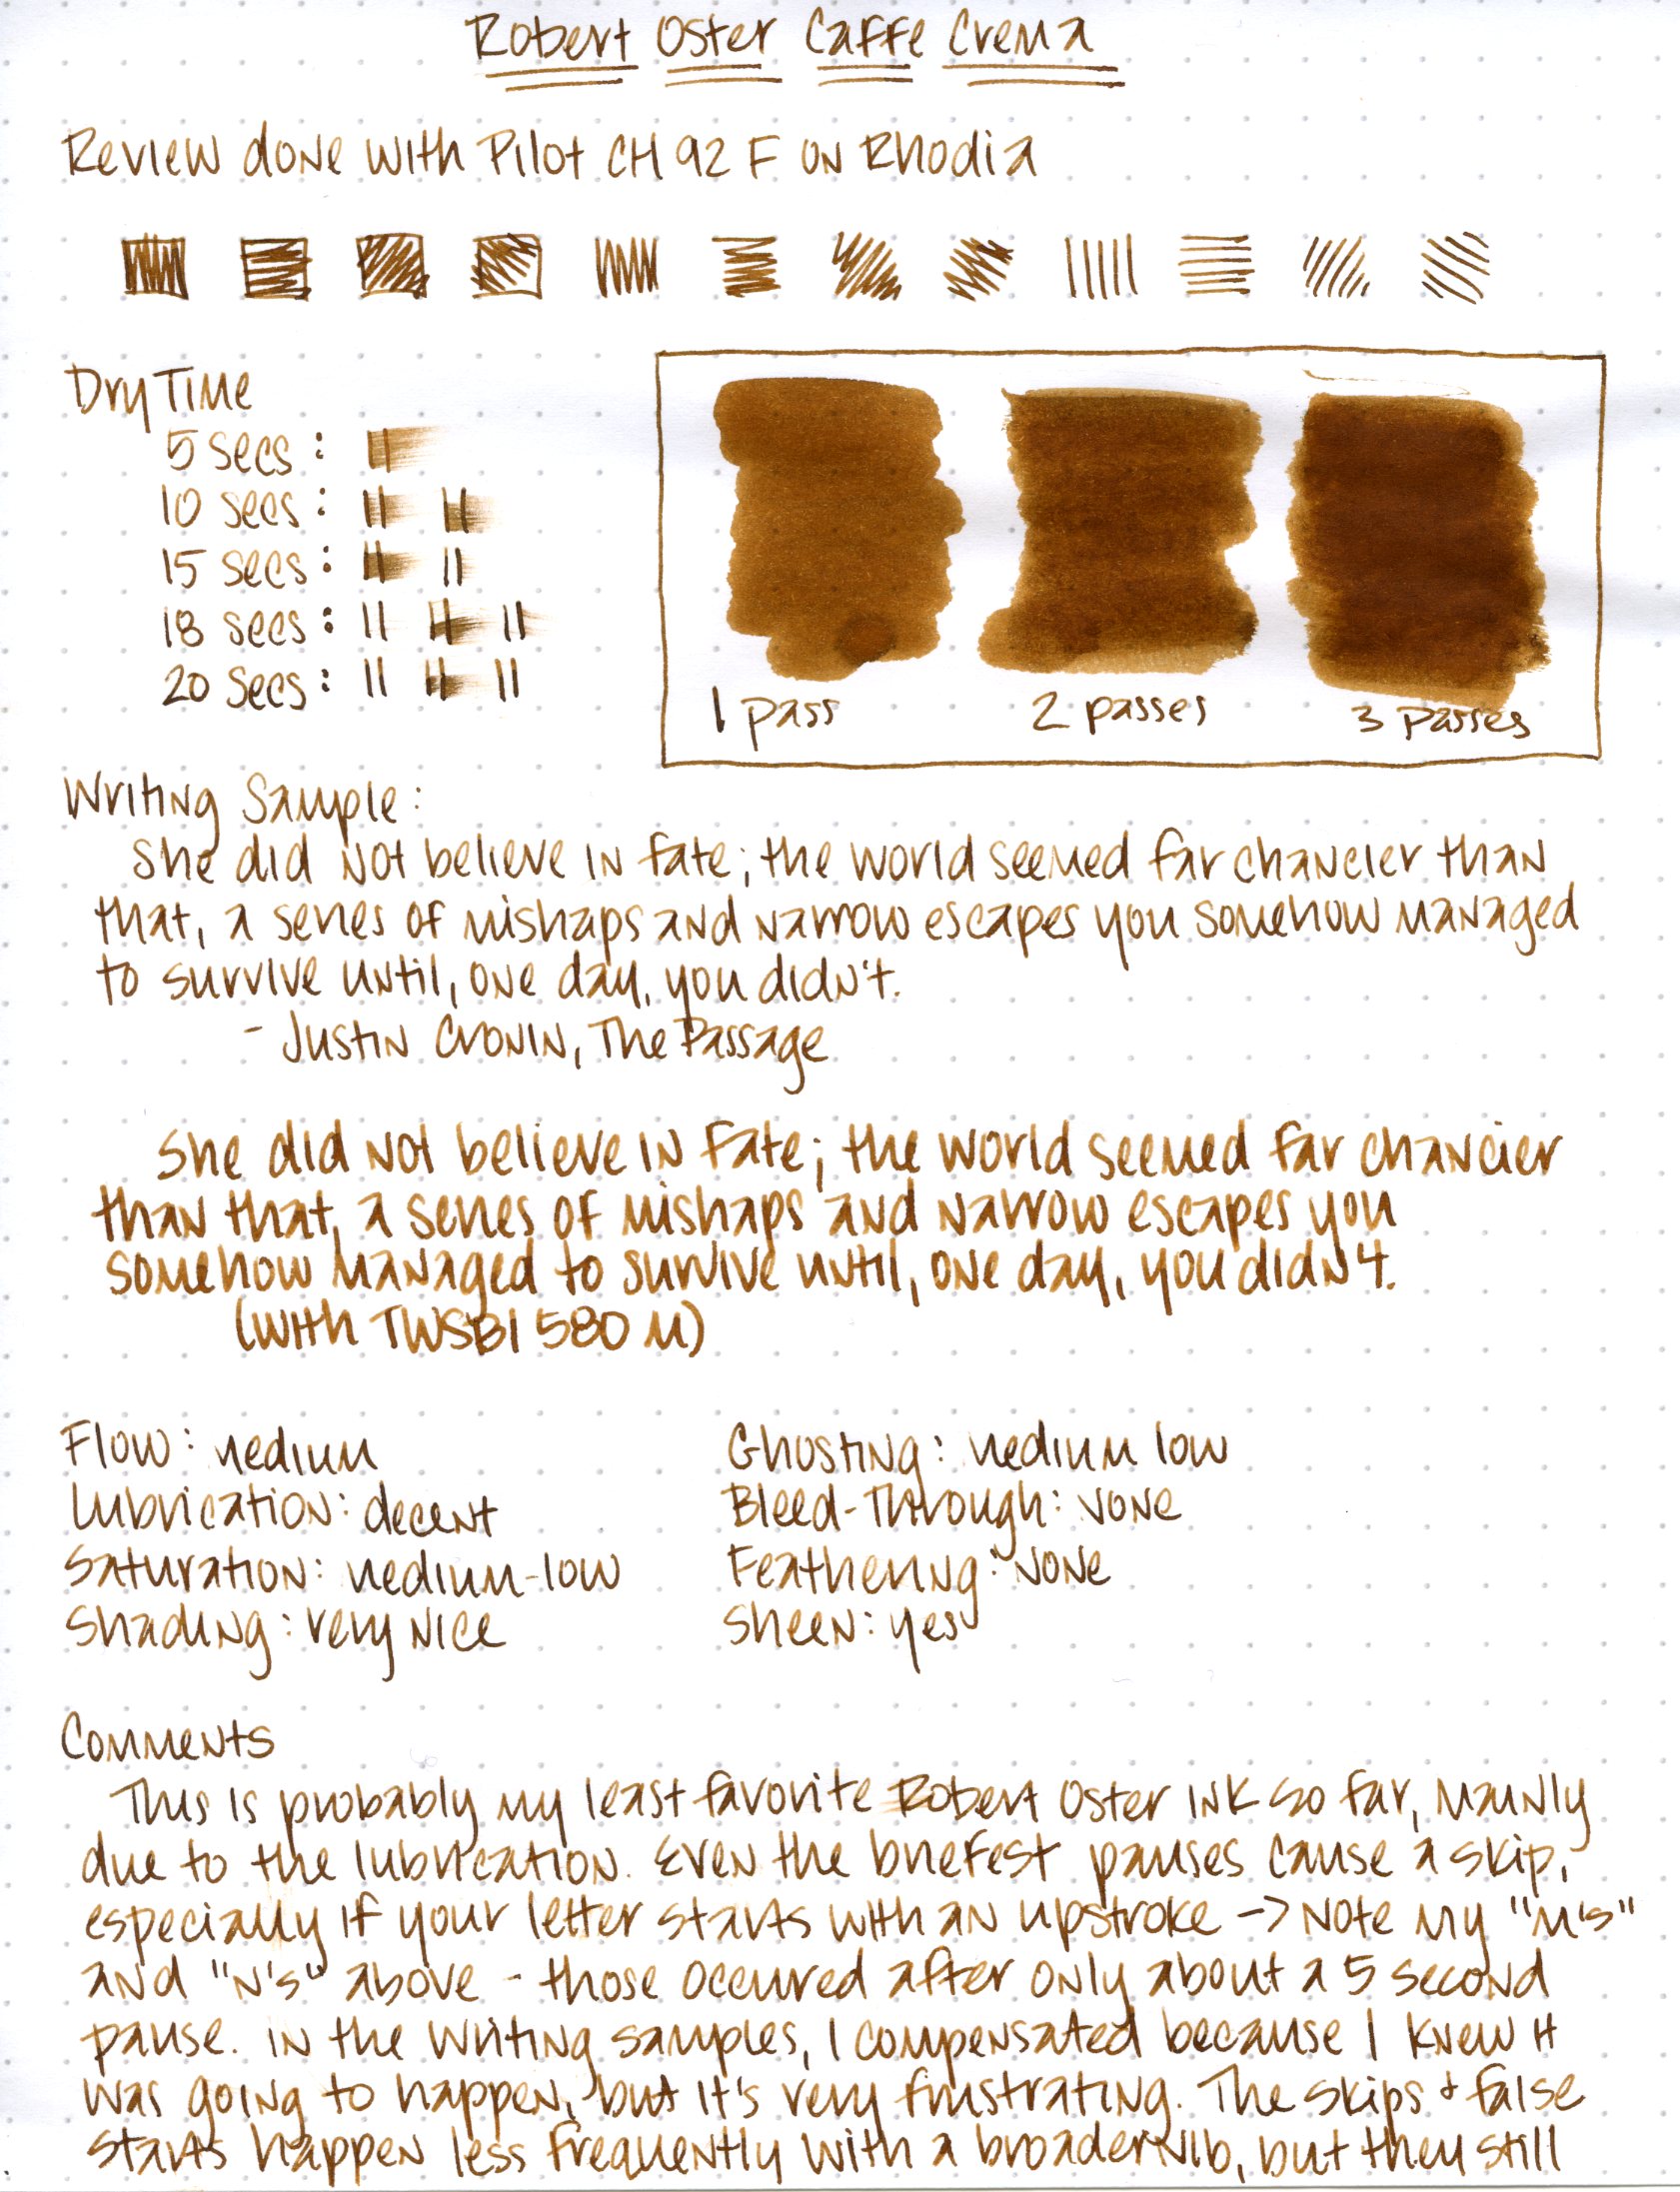 Robert Oster Caffe Crema
Review done with Pilot CH 92 F on Rhodia
Dry Time
5 secs:
10 secs:
15 secs:
18 secs:
20 secs:
1 pass 2 passes 3 passes
Writing Sample:
She did not believe in fate; the world seemed far chancier than
that, a series of mishaps and narrow escapes you somehow managed
to survive until, one day, you didn't.
- Justin Cronin, The Passage
She did not believe in fate; the world seemed far chancier
than that, a series of mishaps and narrow escapes you
somehow managed to survive until, one day, you didn't.
(with TWSBI 580 M)
Flow: medium
Lubrication: decent
Saturation: medium-low
Shading: very nice
Ghosting: medium low
Bleed-Through: none
Feathering: none
Sheen: yes
Comments
This is probably my least favorite Robert Oster ink so far, mainly
due to the lubrication. Even the briefest pauses cause a skip,
especially if your letter starts with an upstroke -> note my "m's"
and "n's" above - those occured after only about a 5 second
pause. In the writing samples, I compensated because I knew it
was going to happen, but it's very frustrating. The skips + false
starts happen less frequently with a broader nib, but they still